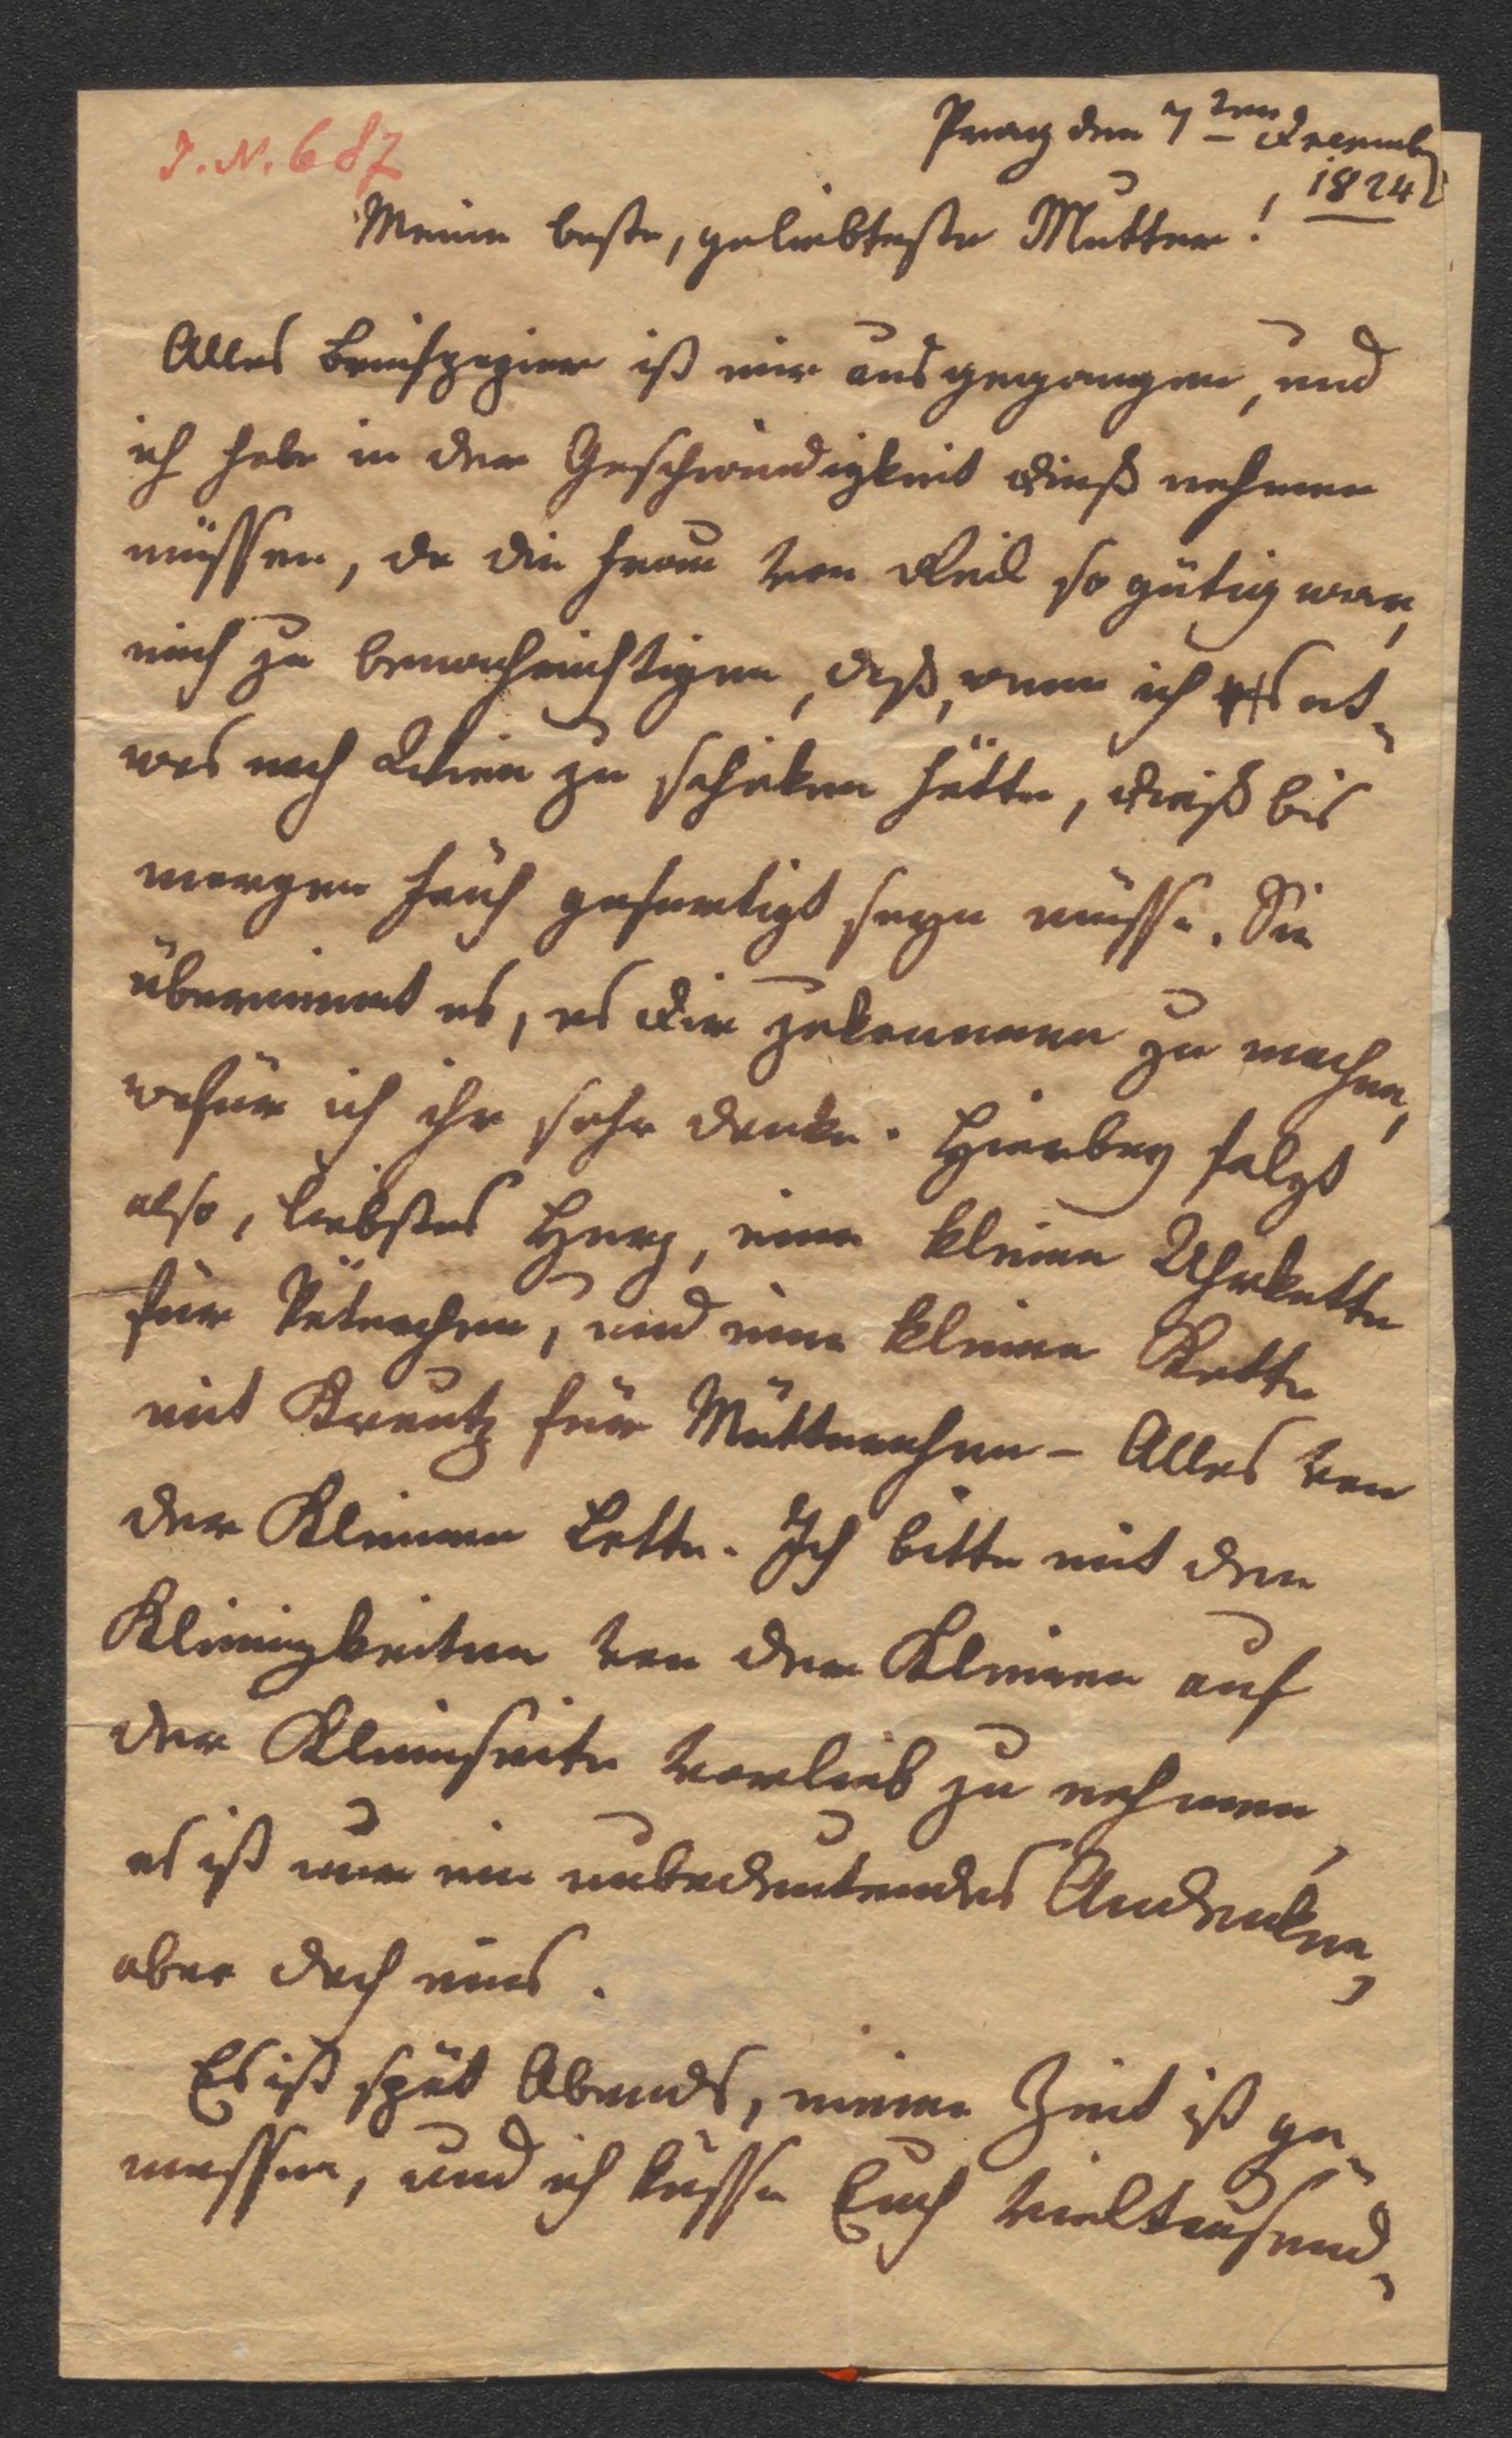 J. N. 687
Prag den 7ten Decemb
1824
Meine beste, geliebteste Mutter!
Alles Briefpapier ist mir ausgegangen, und
ich habe in der Geschwindigkeit dieß nehmen
müssen, da die Frau von so gütig war,
mich zu benachrichtigen, daß, wenn ich et-
was nach Wien zu schiken hätte, dieß bis
morgen früh gefertigt seyn müsse. Sie
übernimmt es, es Dir zukommen zu machen,
wofür ich ihr sehr danke. Hierbey folgt
also, liebstes Herz, eine kleine Uhrkette
für Väterchen, und eine kleine Kette
mit Kreutz für Mütterchen – Alles von
der Kleinen Lotte. Ich bitte mit den
Kleinigkeiten von der Kleinen auf
der Kleinseite vorlieb zu nehmen,
es ist nur ein unbedeutendes Andenken,
aber doch eins.
Es ist spät Abends, meine Zeit ist ge-
messen, und ich küsse Euch vieltausend-